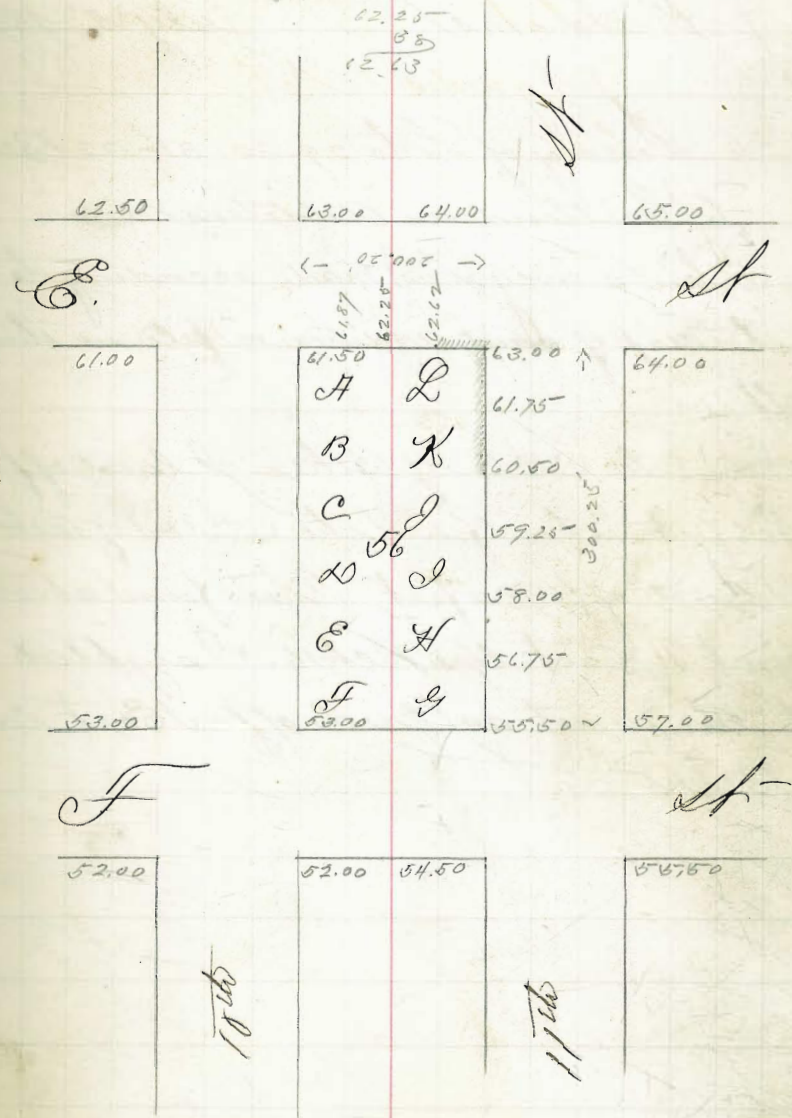 62.25
38
62.63
St
62.50 63.00 64.00 65.00
200.20
E. St
61.87 62.25 62.62
61.00 61.50 63.00 64.00
A L
61.75
B K
60.50
C J
59.25
300.25
56
D I
58.00
E H
56.75
F G
53.00 53.00 55.50 57.00
F St
52.00 52.00 54.50 55.50
10th 11th